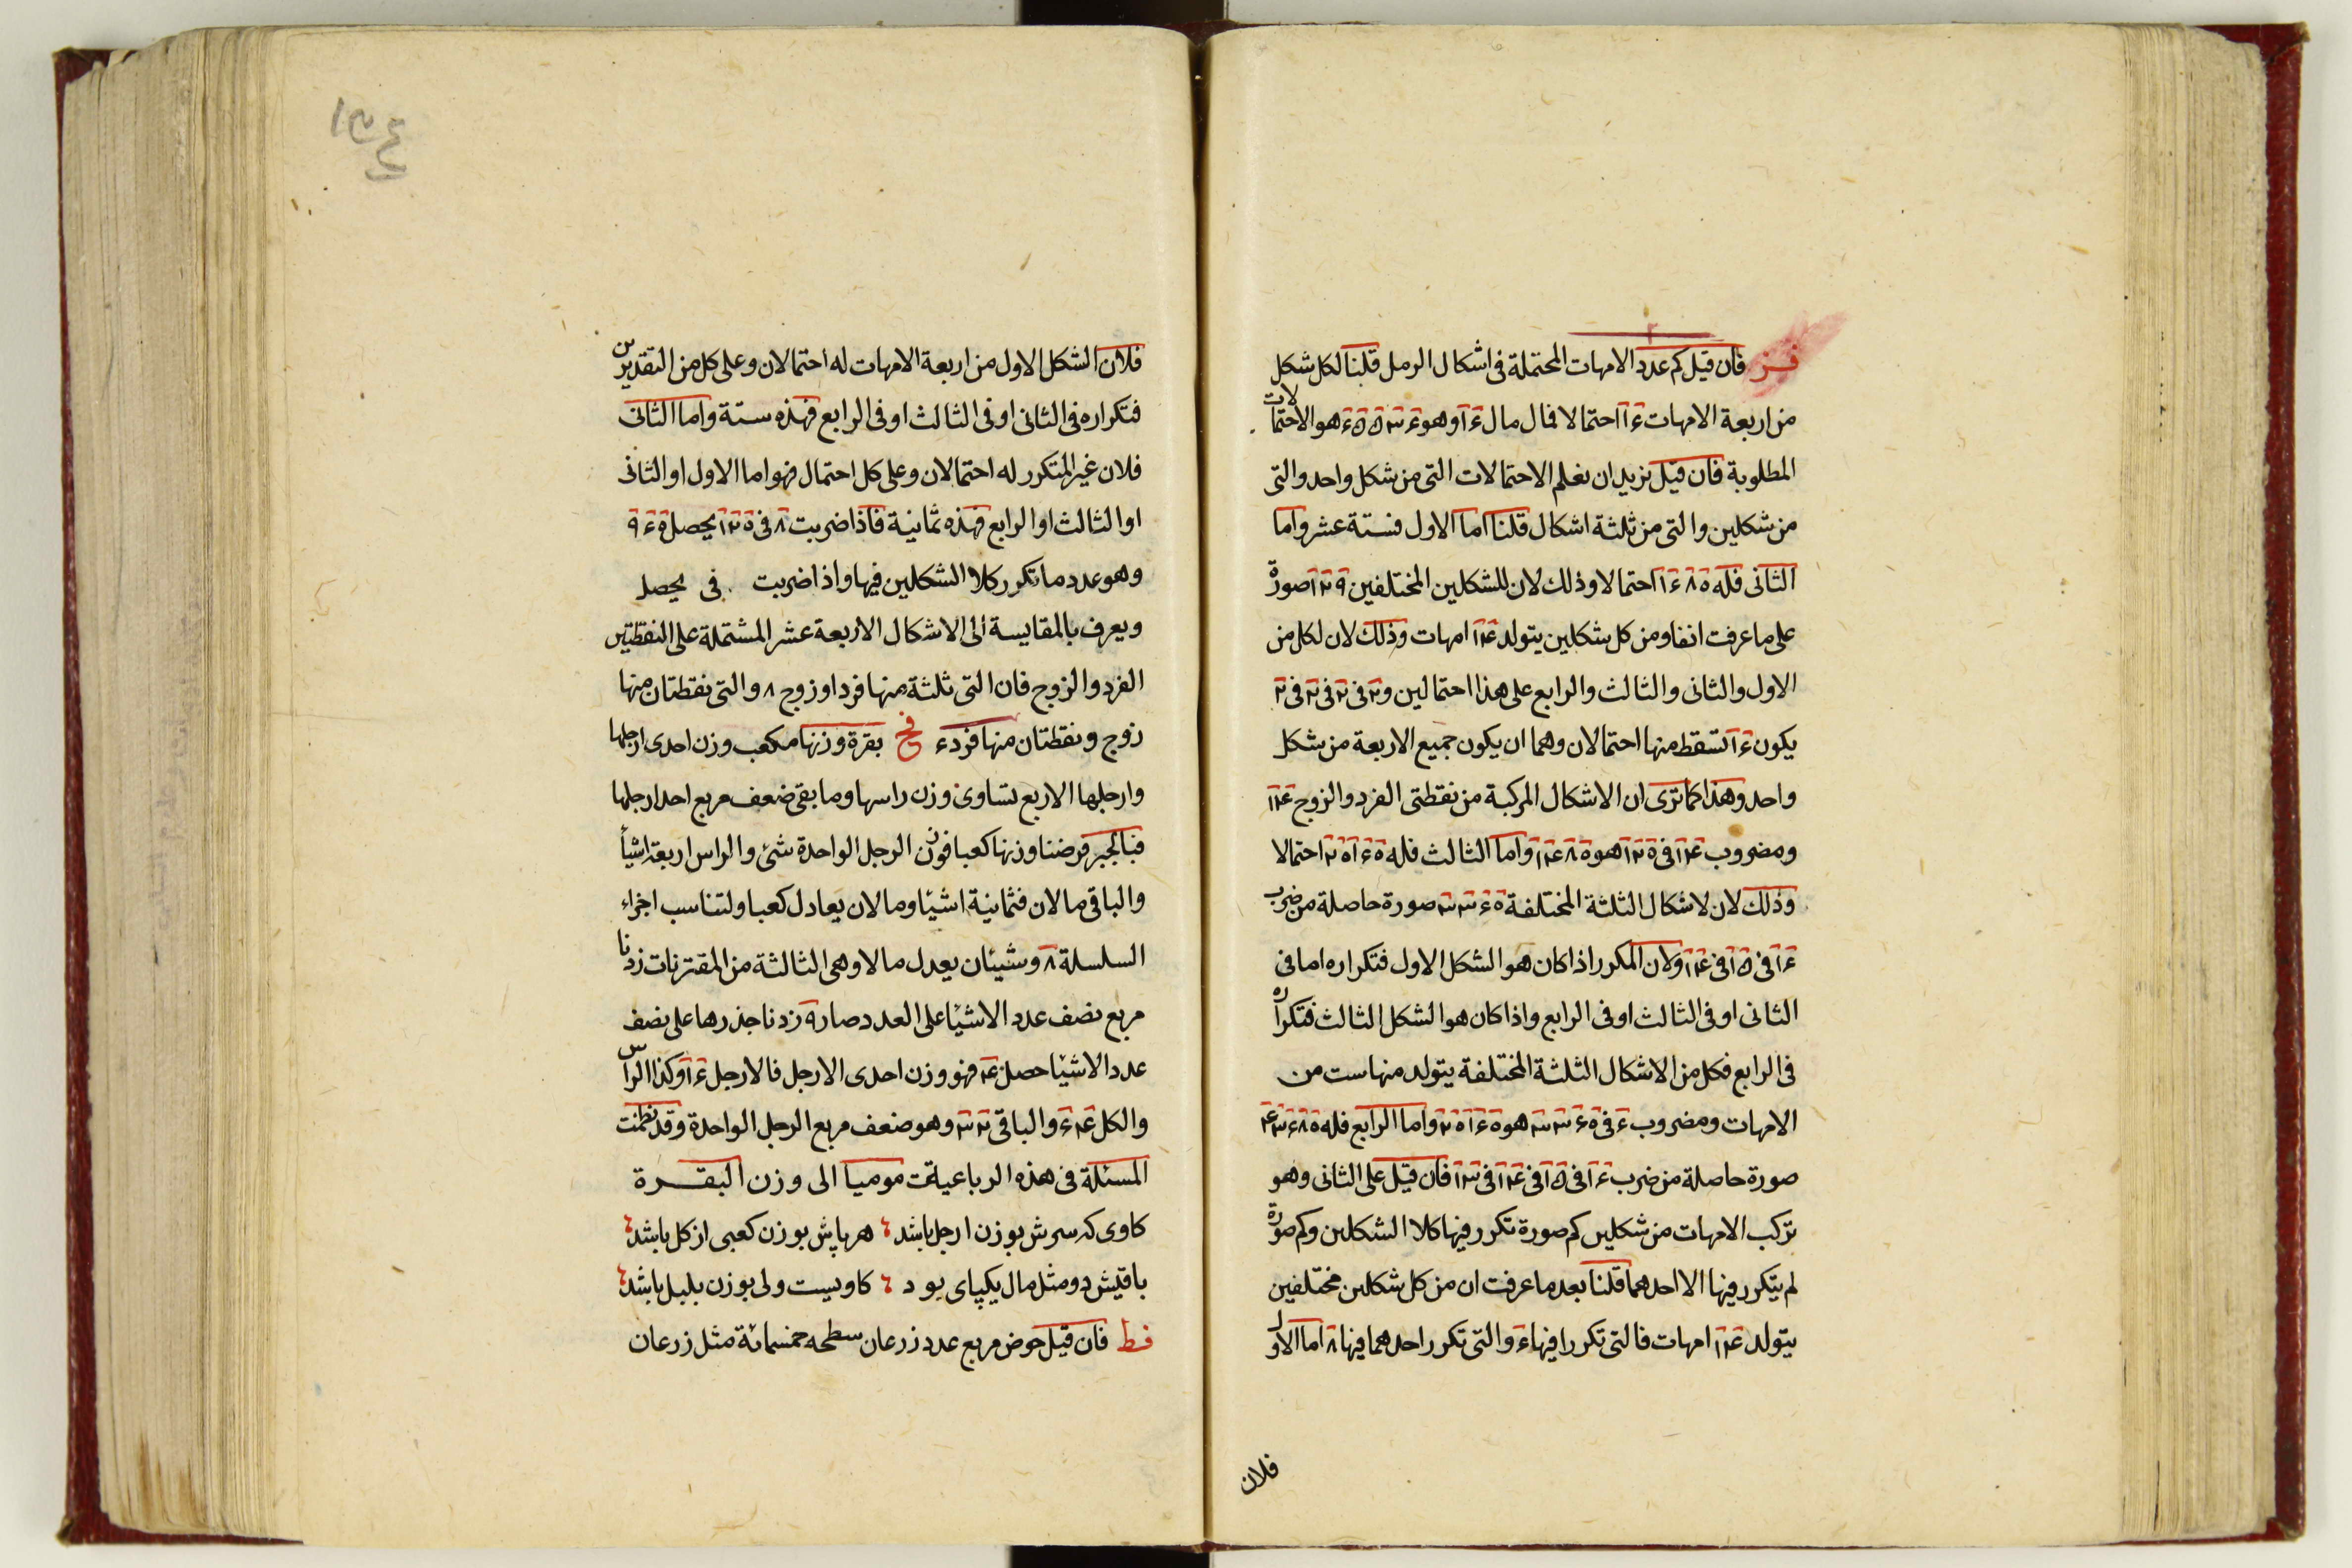 فز فان قيل كم عدد الامهات المحتملة فى اشكال الرمل قلنا لكل شكل
من اربعة الامهات ١٦ احتمالا فمال مال ١٦ وهو ٦٥٥٣٦ هو الاحتمالات
المطلوبة فان قيل نريد ان نعلم الاحتمالات التى من شكل واحد والتى
من شكلين والتى من ثلثة اشكال قلنا اما الاول فستة عشر واما
الثانى فله ١٦٨٠ احتمالا وذلك لان للشكلين المختلفين صورة
على ما عرفت انفا ومن كل شكلين يتولد ١٤ امهات وذلك لان لكل من
الاول والثانى والثالث والرابع على هذا احتمالين و٢ فى ٢ فى ٢ فى ٢
يكون ١٦ تسقط منها احتمالان وهما ان يكون جميع الاربعة من شكل
واحد وهذا كما ترى ان الاشكال المركبة من نقطتى الفرد والزوج ١٤
ومضروب ١٤ فى ١٢٠ هو ١٦٨٠ واما الثالث فله ٢٠١٦٠ احتمالا
وذلك لان لاشكال الثلثة المختلفة ٣٣٦٠ صورة حاصلة من ضرب
١٦ فى ١٥ فى ١٤ ولان المكرر اذا كان هو الشكل الاول فتكراره اما فى
الثانى او فى الثالث او فى الرابع واذا كان هو الشكل الثالث فتكراره
فى الرابع فكل من الاشكال الثلثة المختلفة يتولد منها ست من
الامهات ومضروب ٦ فى ٣٣٦٠ هو ٢٠١٦٠ واما الرابع فله ٤٣٦٨٠
صورة حاصلة من ضرب ١٦ فى ١٥ فى ١٤ فى ١٣ فان قيل على الثانى وهو
تركب الامهات من شكلين كم صورة تكرر فيها كلا الشكلين وكم صورة
لم يتكرر فيها الا احدهما قلنا بعد ما عرفت ان من كل شكلين مختلفين
يتولد ١٤ امهات فالتى تكررا فيها ٦ والتى تكرر احدهما فيها ٨ اما الاول
فلان
فلان الشكل الاول من اربعة الامهات له احتمالان وعلى كل من التقديرين
فتكراره فى الثانى او فى الثالث او فى الرابع فهذه ستة واما الثانى
فلان غير المتكرر له احتمالان وعلى كل احتمال فهو اما الاول او الثانى
او الثالث او الرابع فهذه ثمانية فاذا ضربت ٨ فى ١٢٠ يحصل ٩٦٠
وهو عدد ما تكرر كلا الشكلين فيها واذا ضربت فى يحصل
ويعرف بالمقايسة الى الاشكال الاربعة عشر المشتملة على النقطتين
الفرد والزوج فان التى ثلثة منها فرد او زوج ٨ والتى نقطتان منها
زوج ونقطتان منها فرد ٦ فح بقرة وزنها مكعب وزن احدى ارجلها
وارجلها الاربع تساوى وزن راسها وما بقى ضعف مربع احد ارجلها
فبالجبر فرضنا وزنها كعبا فوزن الرجل الواحدة شئ والراس اربعة اشيأ
والباقى مالان فثمانية اشيا ومالان يعادل كعبا ولتناسب اجزاء
السلسلة ٨ وشيئان يعدل مالا وهى الثالثة من المقترنات زدنا
مربع نصف عدد الاشيا على العدد صار ٩ زدنا جذرها على نصف
عدد الاشيا حصل ٤ فهو وزن احدى الارجل فالارجل ١٦ وكذا الراس
والكل ٦٤ والباقى ٣٢ وهو ضعف مربع الرجل الواحدة وقد نظمت
المسئلة فى هذه الرباعية موميا الى وزن البقـرة
كاوى كه سرش بوزن ارجل باشد هر پاش بوزن كعبى از كل باشد
باقيش دو مثل مال يكپاى بود كاويست ولى بوزن بلبل باشد
فط فان قيل حوض مربع عدد ذرعان سطحه خمسمائة مثل ذرعان